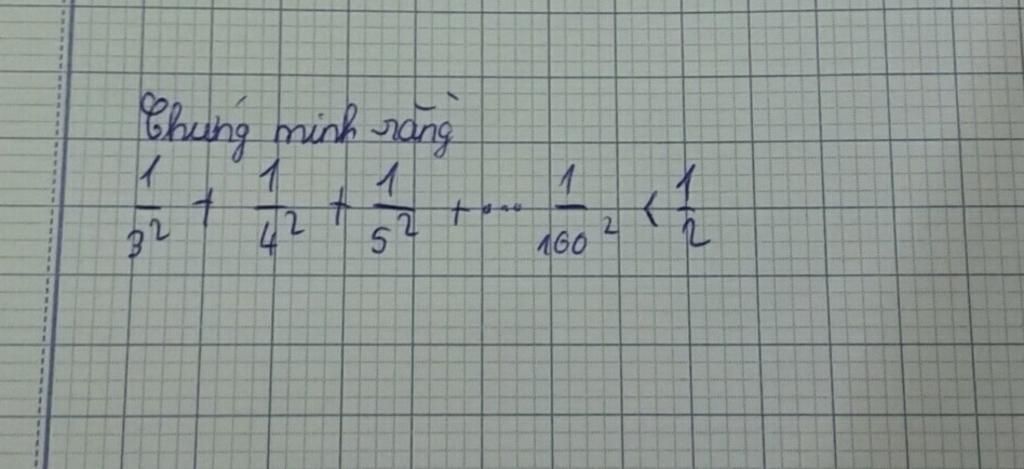 Chứng minh rằng
1/3² + 1/4² + 1/5² + ... 1/100² < 1/2